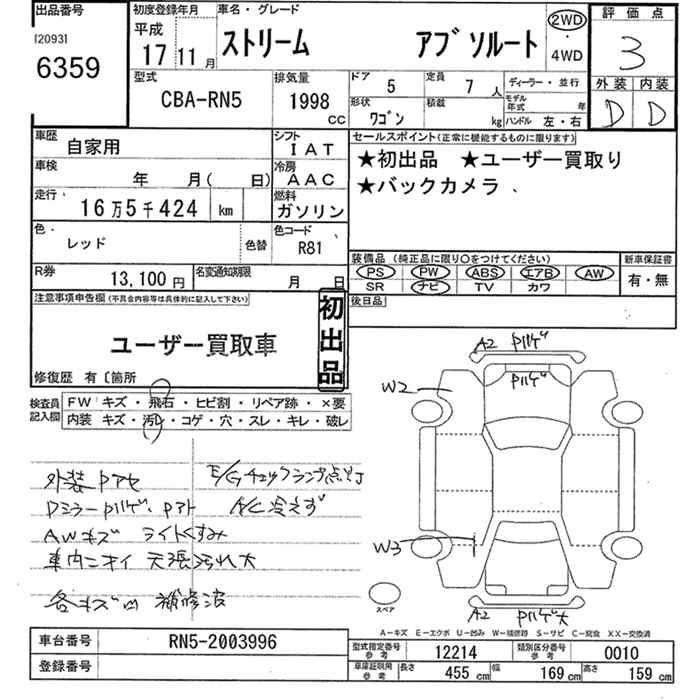 出品番号 初度登録年月 車名・グレード 評価点
[2093]
6359
平成
17 11 月 ストリーム アブソルート 2WD ・ 4WD 3
型式 CBA-RN5 排気量 1998 CC ドア 5 定員 7 人 ディーラー・並行 外装 内装
形状 ワゴン 積載 kg モデル年式 年 ハンドル 左・右 D D
車歴 自家用 シフト IAT セールスポイント(正常に機能するものに限ります)
車検 年 月( 日) 冷房 AAC ★初出品 ★ユーザー買取り
走行 16万5千424 km 燃料 ガソリン ★バックカメラ
色 レッド 色替 色コード R81
R券 13,100 円 名変通知期限 月 日
装備品 (純正品に限り○をつけてください) 新車保証書
PS PW ABS エアB AW 有・無
SR ナビ TV カワ
注意事項申告欄(不具合内容等は具体的に記入して下さい) 後日品
ユーザー買取車
初出品
修復歴 有〔箇所
検査員記入欄 FW キズ・飛石・ヒビ割・リペア跡・×要
内装 キズ・汚レ・コゲ・穴・スレ・キレ・破レ
外装 E/Gチェックランプ点灯
Dミラー A/C冷えず
AWキズ ライトくすみ
車内ニオイ 天張汚れ大
各キズ凹 補修波
A2
W2
W3
スペア
A2
A-キズ E-エクボ U-凹み W-補修跡 S-サビ C-腐食 XX-交換済
車台番号 RN5-2003996
登録番号
型式指定番号 参考 12214 類別区分番号 参考 0010
車庫証明用 参考 長さ 455 cm 幅 169 cm 高さ 159 cm